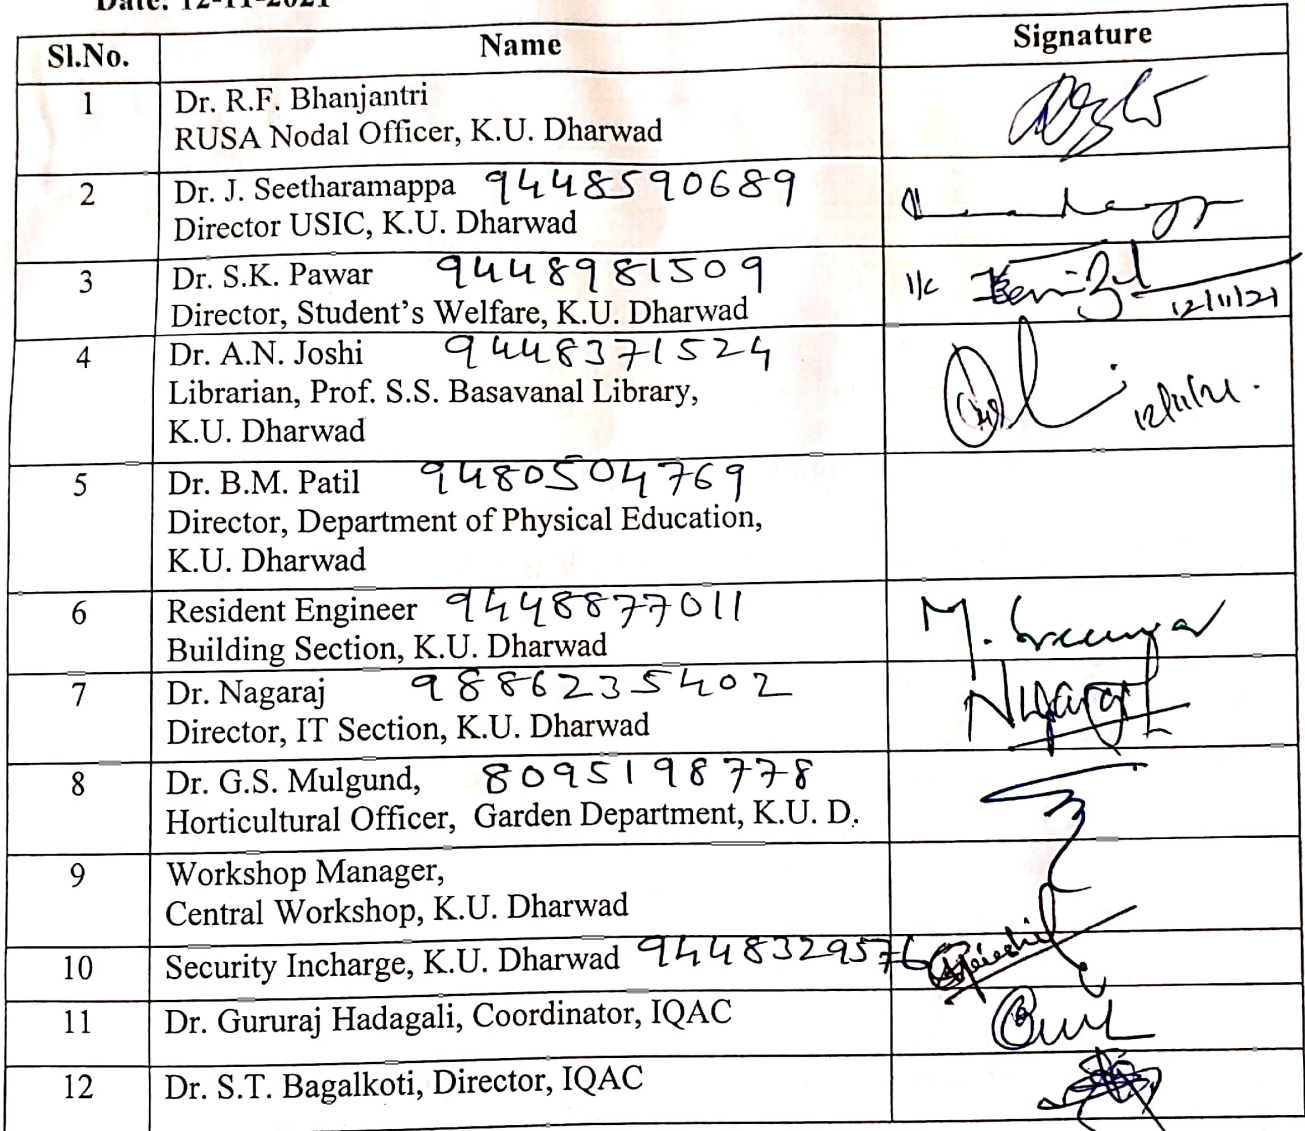 Date: 12-11-2021
Sl.No. Name Signature
1 Dr. R.F. Bhanjantri
RUSA Nodal Officer, K.U. Dharwad
2 Dr. J. Seetharamappa 9448590689
Director USIC, K.U. Dharwad
3 Dr. S.K. Pawar 9448981509
Director, Student's Welfare, K.U. Dharwad
I/c 12/11/21
4 Dr. A.N. Joshi 9448371524
Librarian, Prof. S.S. Basavanal Library,
K.U. Dharwad
12/11/21.
5 Dr. B.M. Patil 9480504769
Director, Department of Physical Education,
K.U. Dharwad
6 Resident Engineer 9448877011
Building Section, K.U. Dharwad
7 Dr. Nagaraj 9886235402
Director, IT Section, K.U. Dharwad
Nagaraj
8 Dr. G.S. Mulgund, 8095198778
Horticultural Officer, Garden Department, K.U. D.
9 Workshop Manager,
Central Workshop, K.U. Dharwad
10 Security Incharge, K.U. Dharwad 9448329576
11 Dr. Gururaj Hadagali, Coordinator, IQAC
12 Dr. S.T. Bagalkoti, Director, IQAC